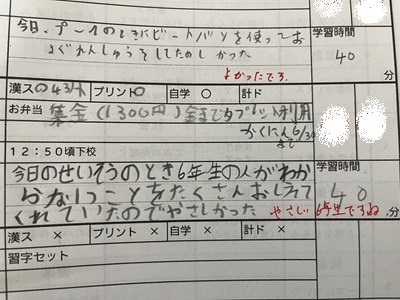 今日、プールのときにビートバンを使ってお
よぐれんしゅうをしてたのしかった
よかったです
学習時間
40
分
漢ス プリント○ 自学 ○ 計ド
お弁当 集金(1300円)金までタブレット利用
かくにん6/30
まで
12:50頃下校
学習時間
今日のせいそうのとき6年生の人がわか
らないことをたくさんおしえて
くれていたのでやさしかった やさしい6年生ですね
40
分
漢ス × プリント × 自学 × 計ド ×
習字セット